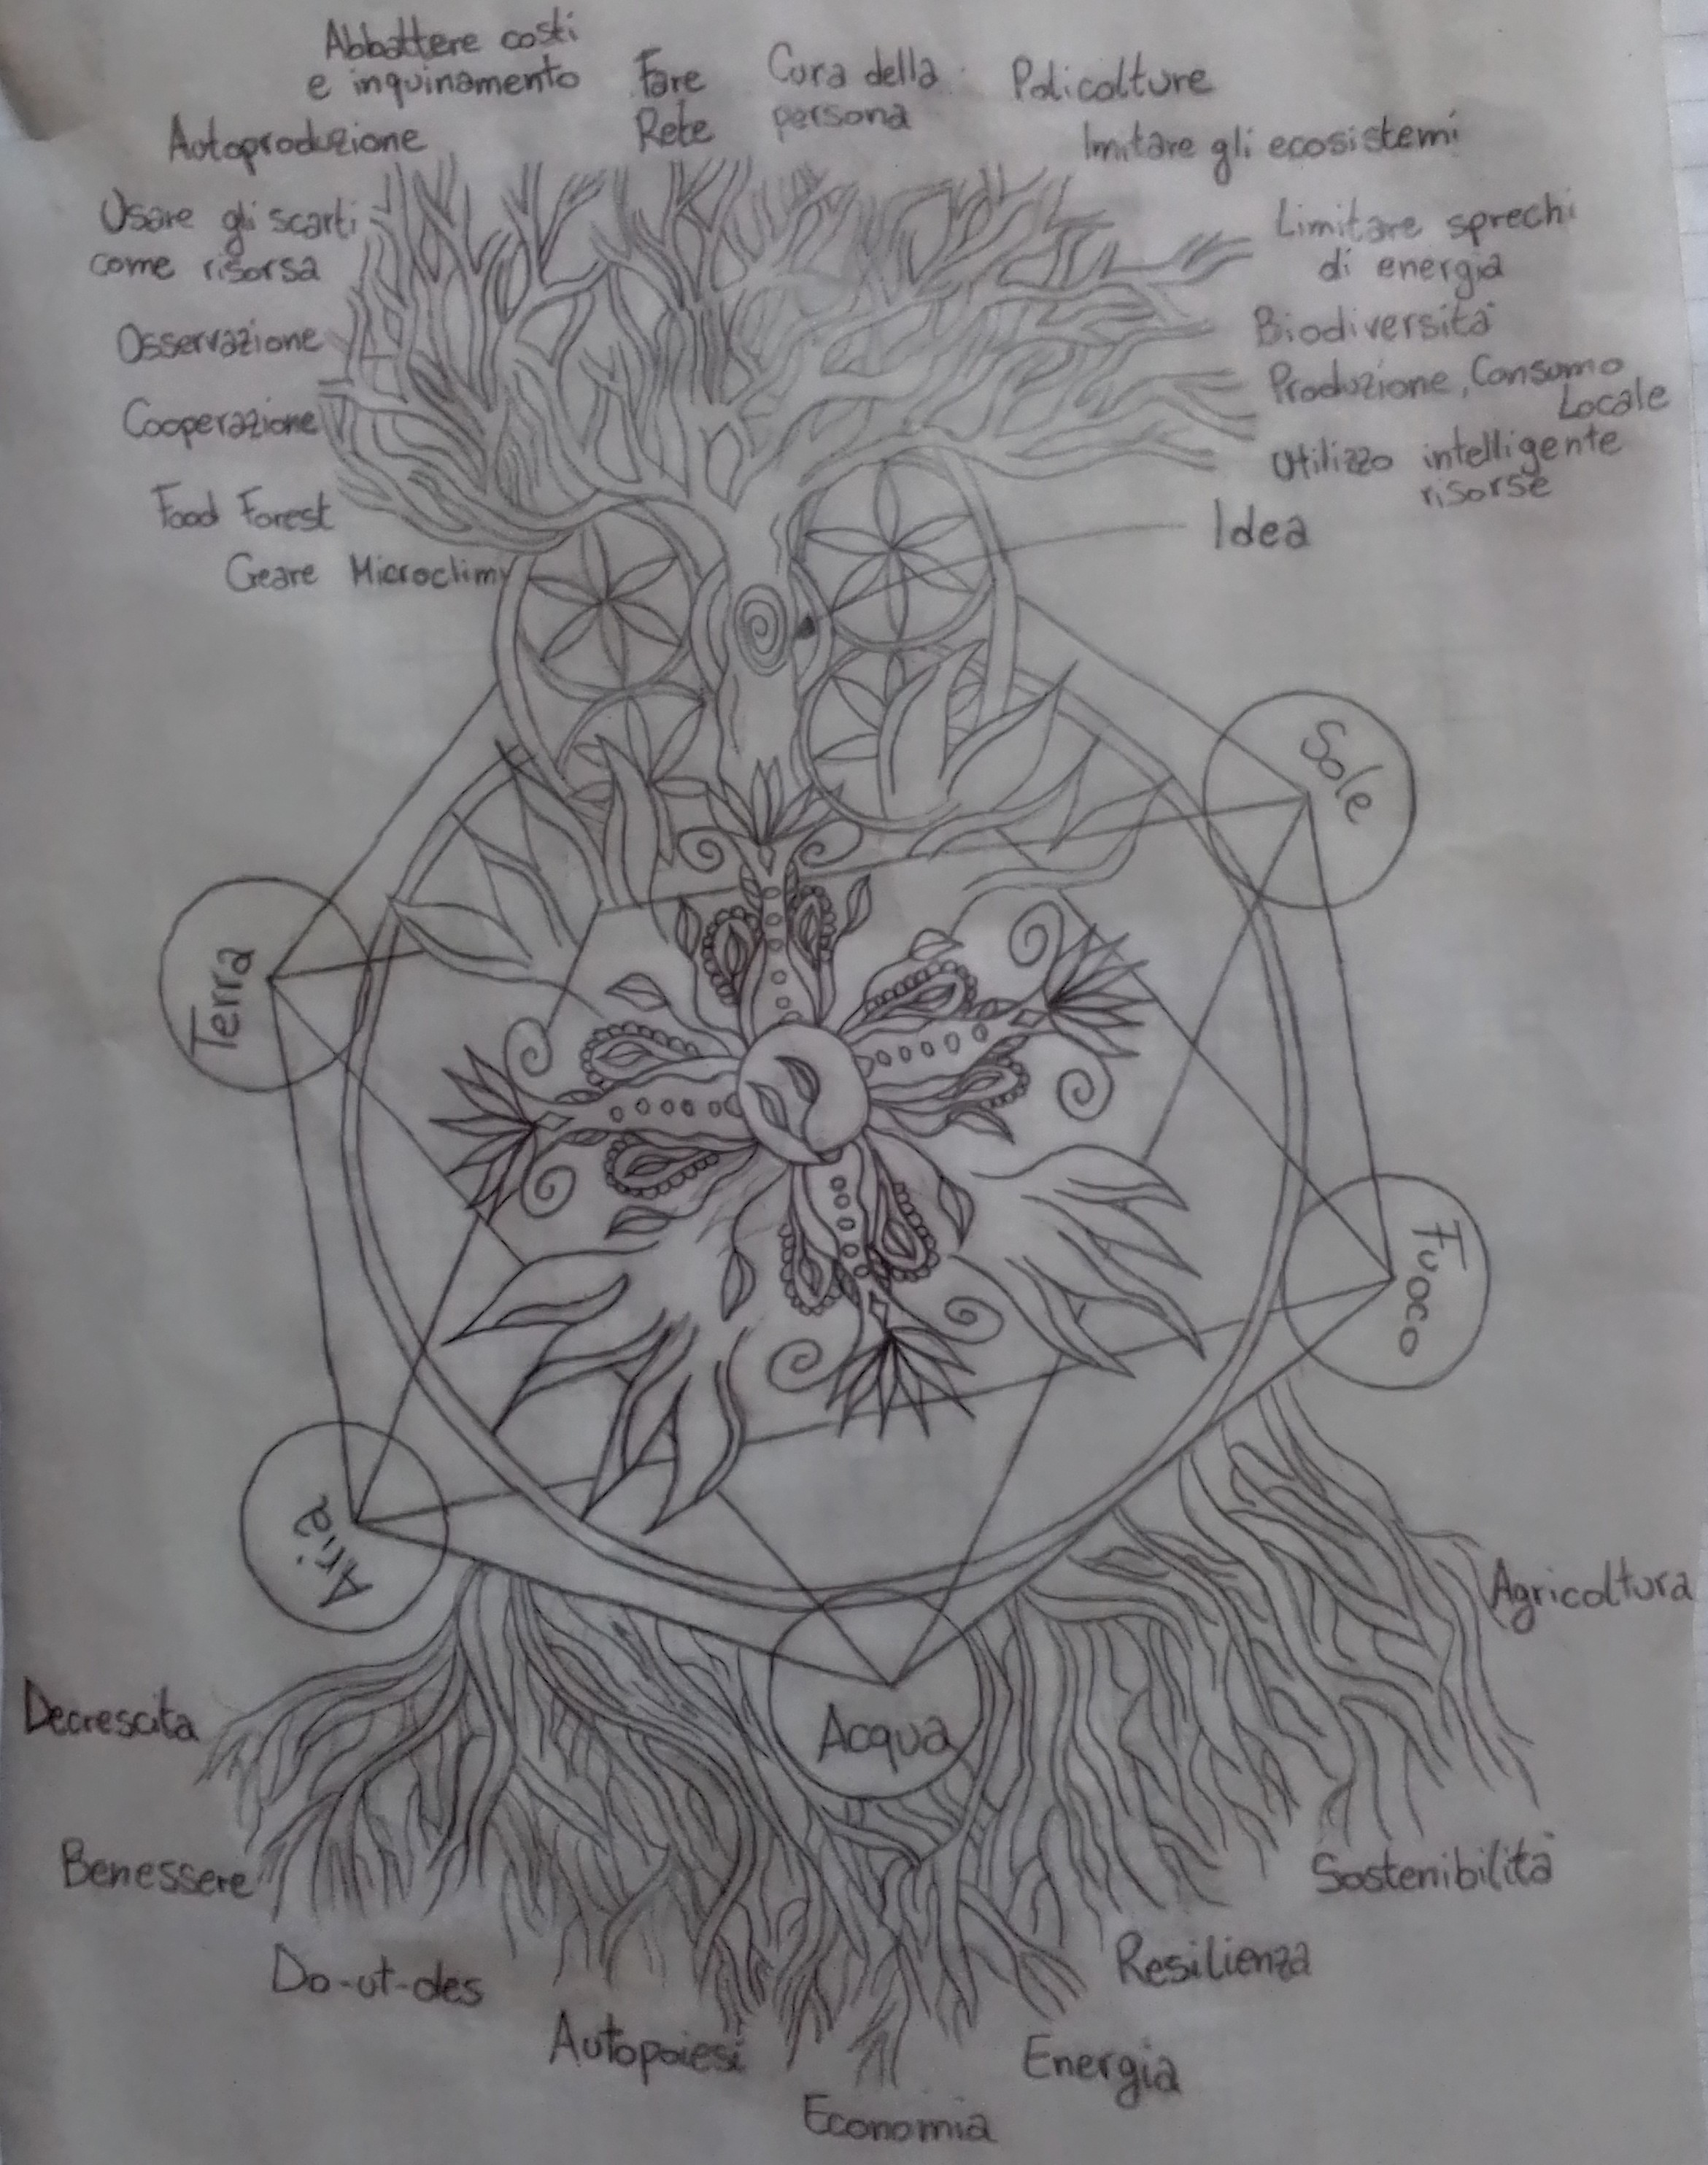 Abbattere costi
e inquinamento
Fare
Rete
Cura della
persona
Policolture
Autoproduzione
Imitare gli ecosistemi
Usare gli scarti
come risorsa
Limitare sprechi
di energia
Osservazione
Biodiversità
Produzione, Consumo
Locale
Cooperazione
Utilizzo intelligente
risorse
Food Forest
Idea
Geare Microclimy
Sole
Terra
Fuoco
Aria
Acqua
Agricoltura
Decrescita
Benessere
Sostenibilità
Do-ut-des
Resilienza
Autopoiesi
Energia
Economia